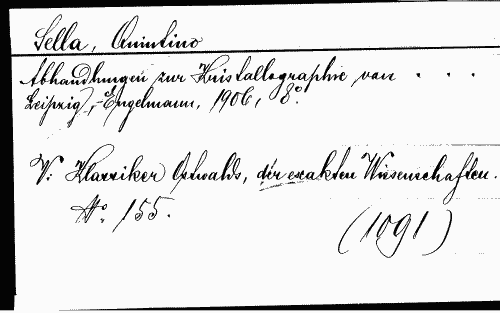 Sella, Quintino
Abhandlungen zur Kristallographie von . . .
Leipzig, Engelmann, 1906, 8°.
V: Klassiker Ostwalds, der exakten Wissenschaften.
N° 155.
(1091)